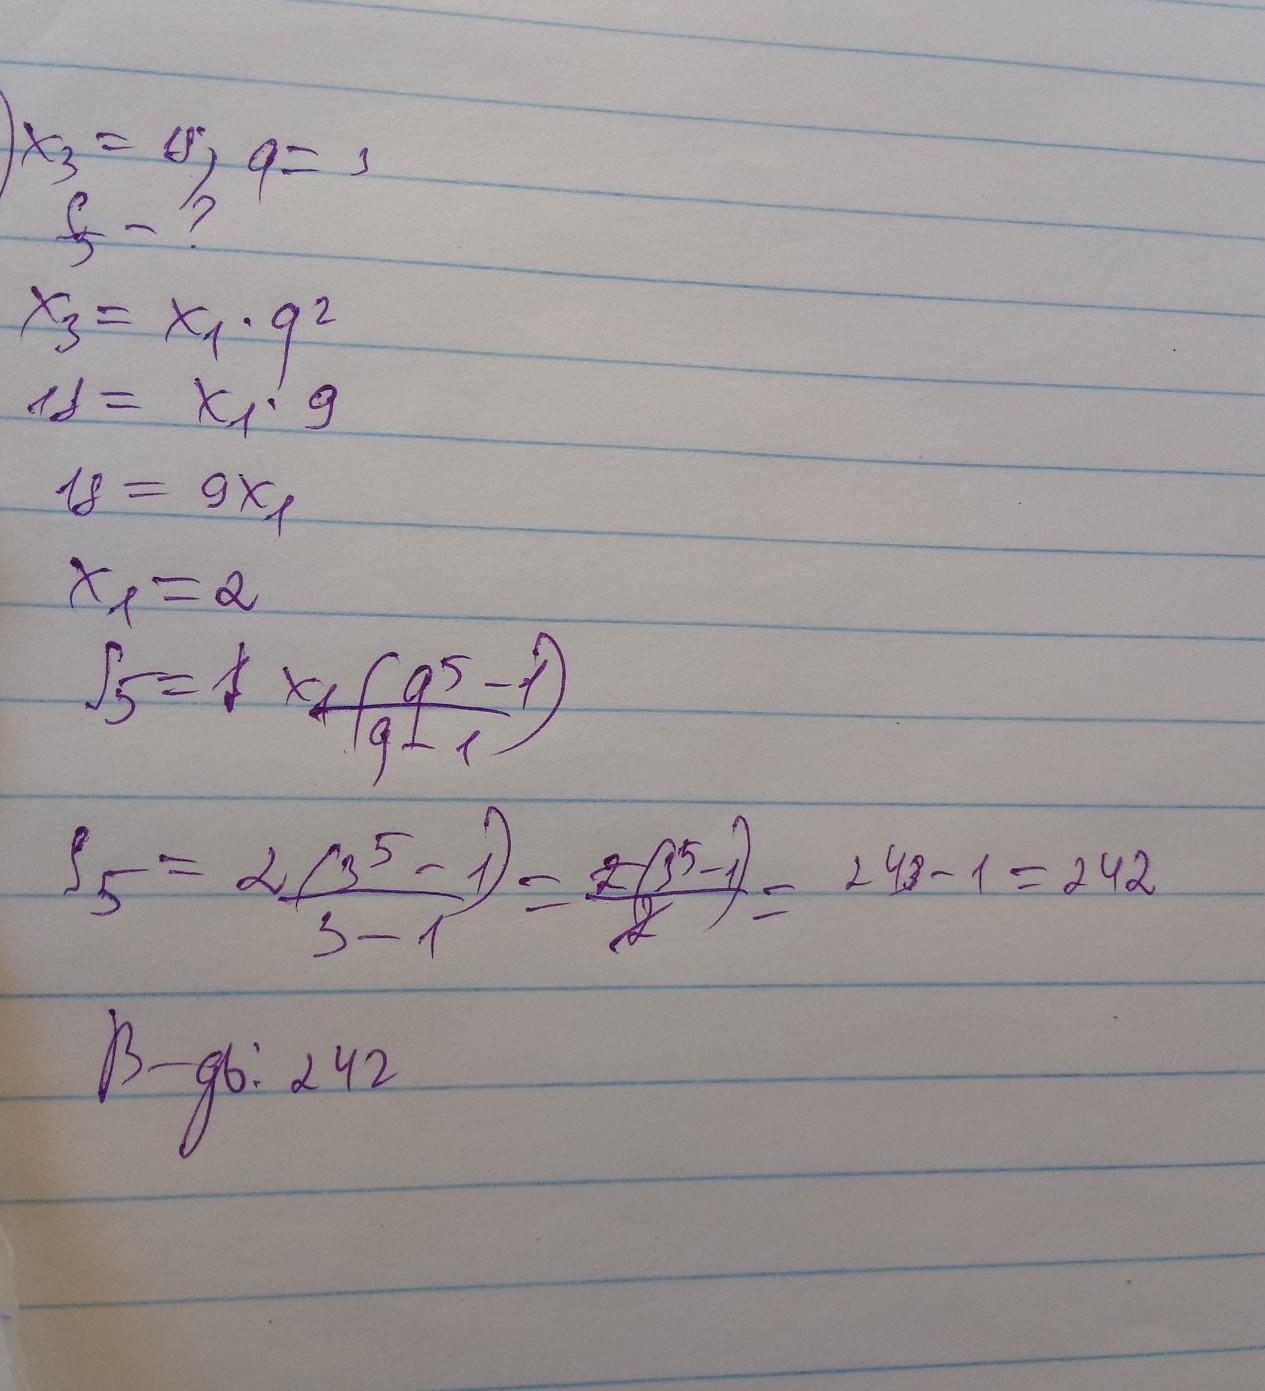 ) x₃ = 18, q = 3
S₅ - ?
x₃ = x₁ · q²
18 = x₁ · 9
18 = 9x₁
x₁ = 2
S₅ = x₁(q⁵ - 1) / (q - 1)
S₅ = 2(3⁵ - 1) / (3 - 1) = 2(3⁵ - 1) / 2 = 243 - 1 = 242
В-дь: 242